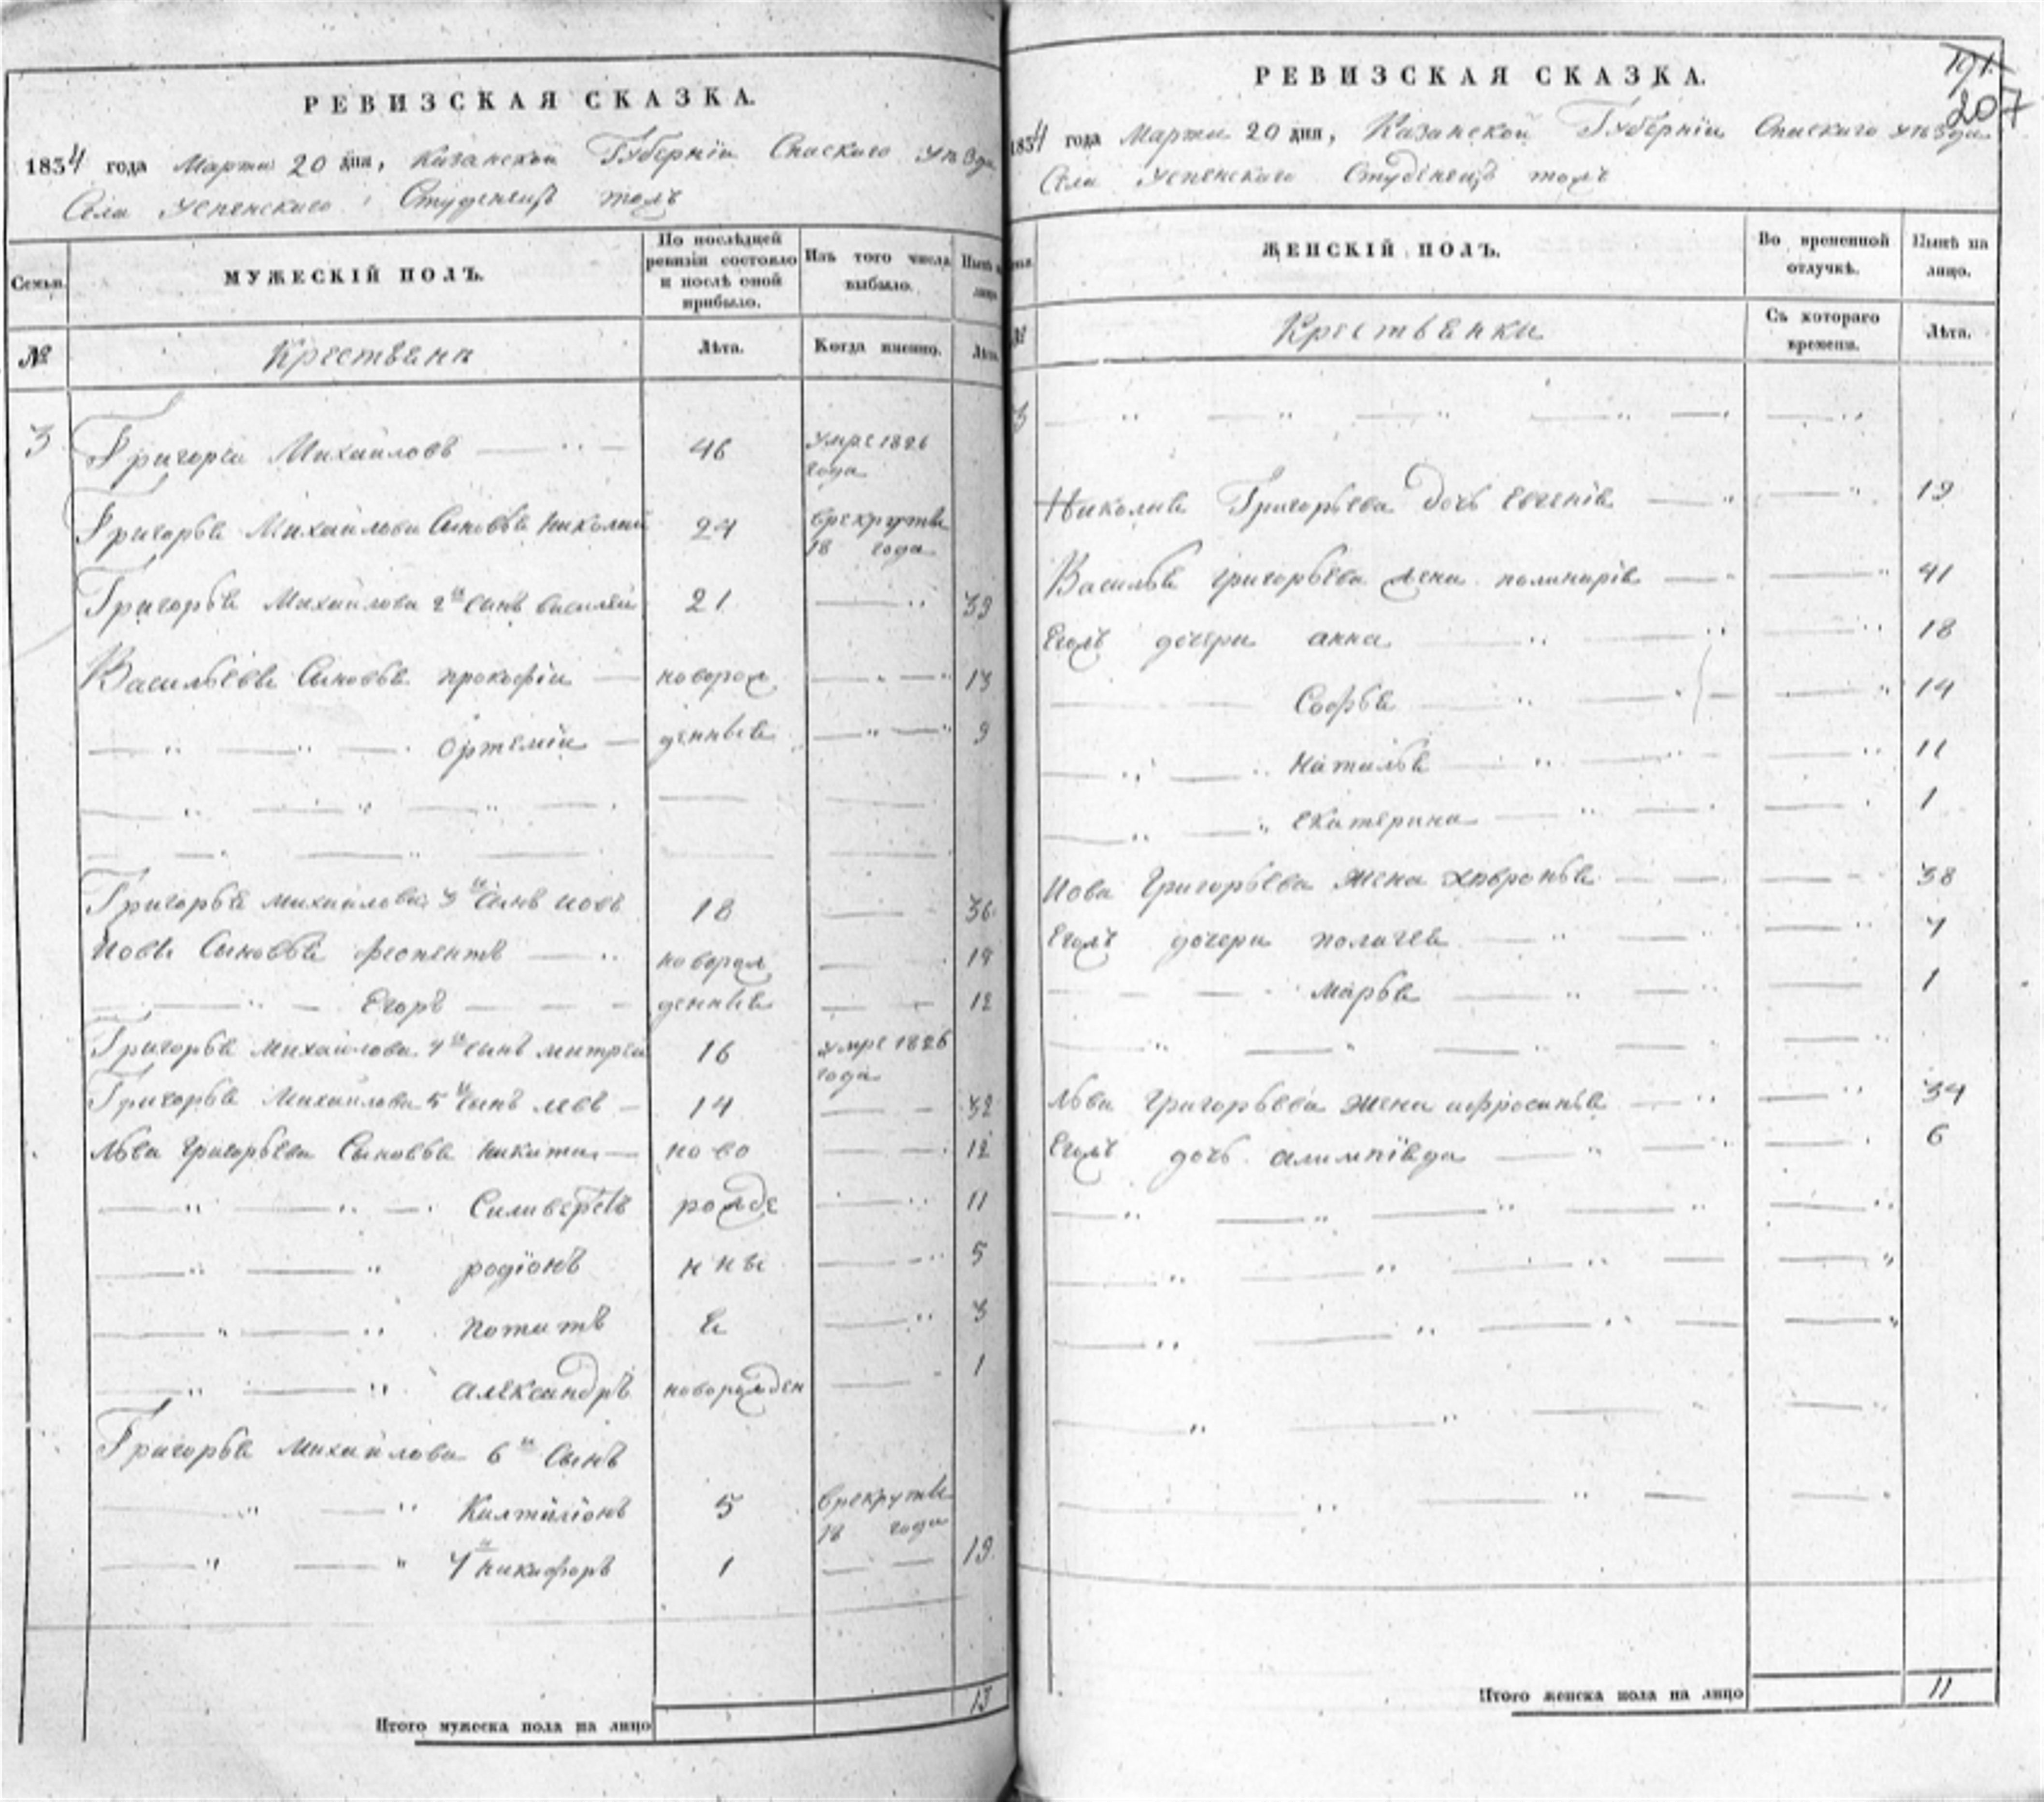 РЕВИЗСКАЯ СКАЗКА.
1834 года Марта 20 дня, Казанской Губернiи Спаскаго уѣзда
Села Успенскаго Студенецъ тожъ
Семьи.
МУЖЕСКIЙ ПОЛЪ.
По послѣдней ревизiи состояло и послѣ оной прибыло.
Изъ того числа выбыло.
Нынѣ на лицо.
№
Крестьяня
Лѣта.
Когда именно.
Лѣта.
3 Григореи Михайловъ 46 умре 1826
года
Григорья Михайлова Сыновья николай 24 врекруты
18 года
Григорья Михайлова 2й сынъ василеи 21 39
Васильевы Сыновья прокофiи новорож 13
Ортемiи денныя 9
Григорья михайлова 3й сынъ иовъ 18 36
Иовы Сыновья феопентъ новорож 15
Егоръ денныя 12
Григорья михайлова 4й сынъ митреи 16 умре 1826
года
Григорья Михайлова 5й сынъ левъ 14 32
Льва григорьева Сыновья никита ново 12
Силиверстъ рожде 11
родiонъ нны 5
потапъ я 3
александръ новорожден 1
Григорья михайлова 6й Сынъ
5 врекруты
18 года
7й никифоръ 1 19
Итого мужеска пола на лицо 13
РЕВИЗСКАЯ СКАЗКА.
207
1834 года Марта 20 дня, Казанской Губернiи Спаскаго уѣзда
Села Успенскаго Студенецъ тожъ
ЖЕНСКIЙ ПОЛЪ.
Во временной отлучкѣ.
Нынѣ на лицо.
№
Крестьянки
Съ котораго времени.
Лѣта.
3
Николая Григорьева дочь Евгенiя 19
Василья григорьева жена полинарiя 41
Егожъ дочери анна 18
Софья 14
Наталья 11
екатерина 1
Иова Григорьева жена хавронья 38
Егожъ дочери полагея 4
марья 1
Льва григорьева жена афросинья 34
Егожъ дочь алимпiяда 6
Итого женска пола на лицо 11